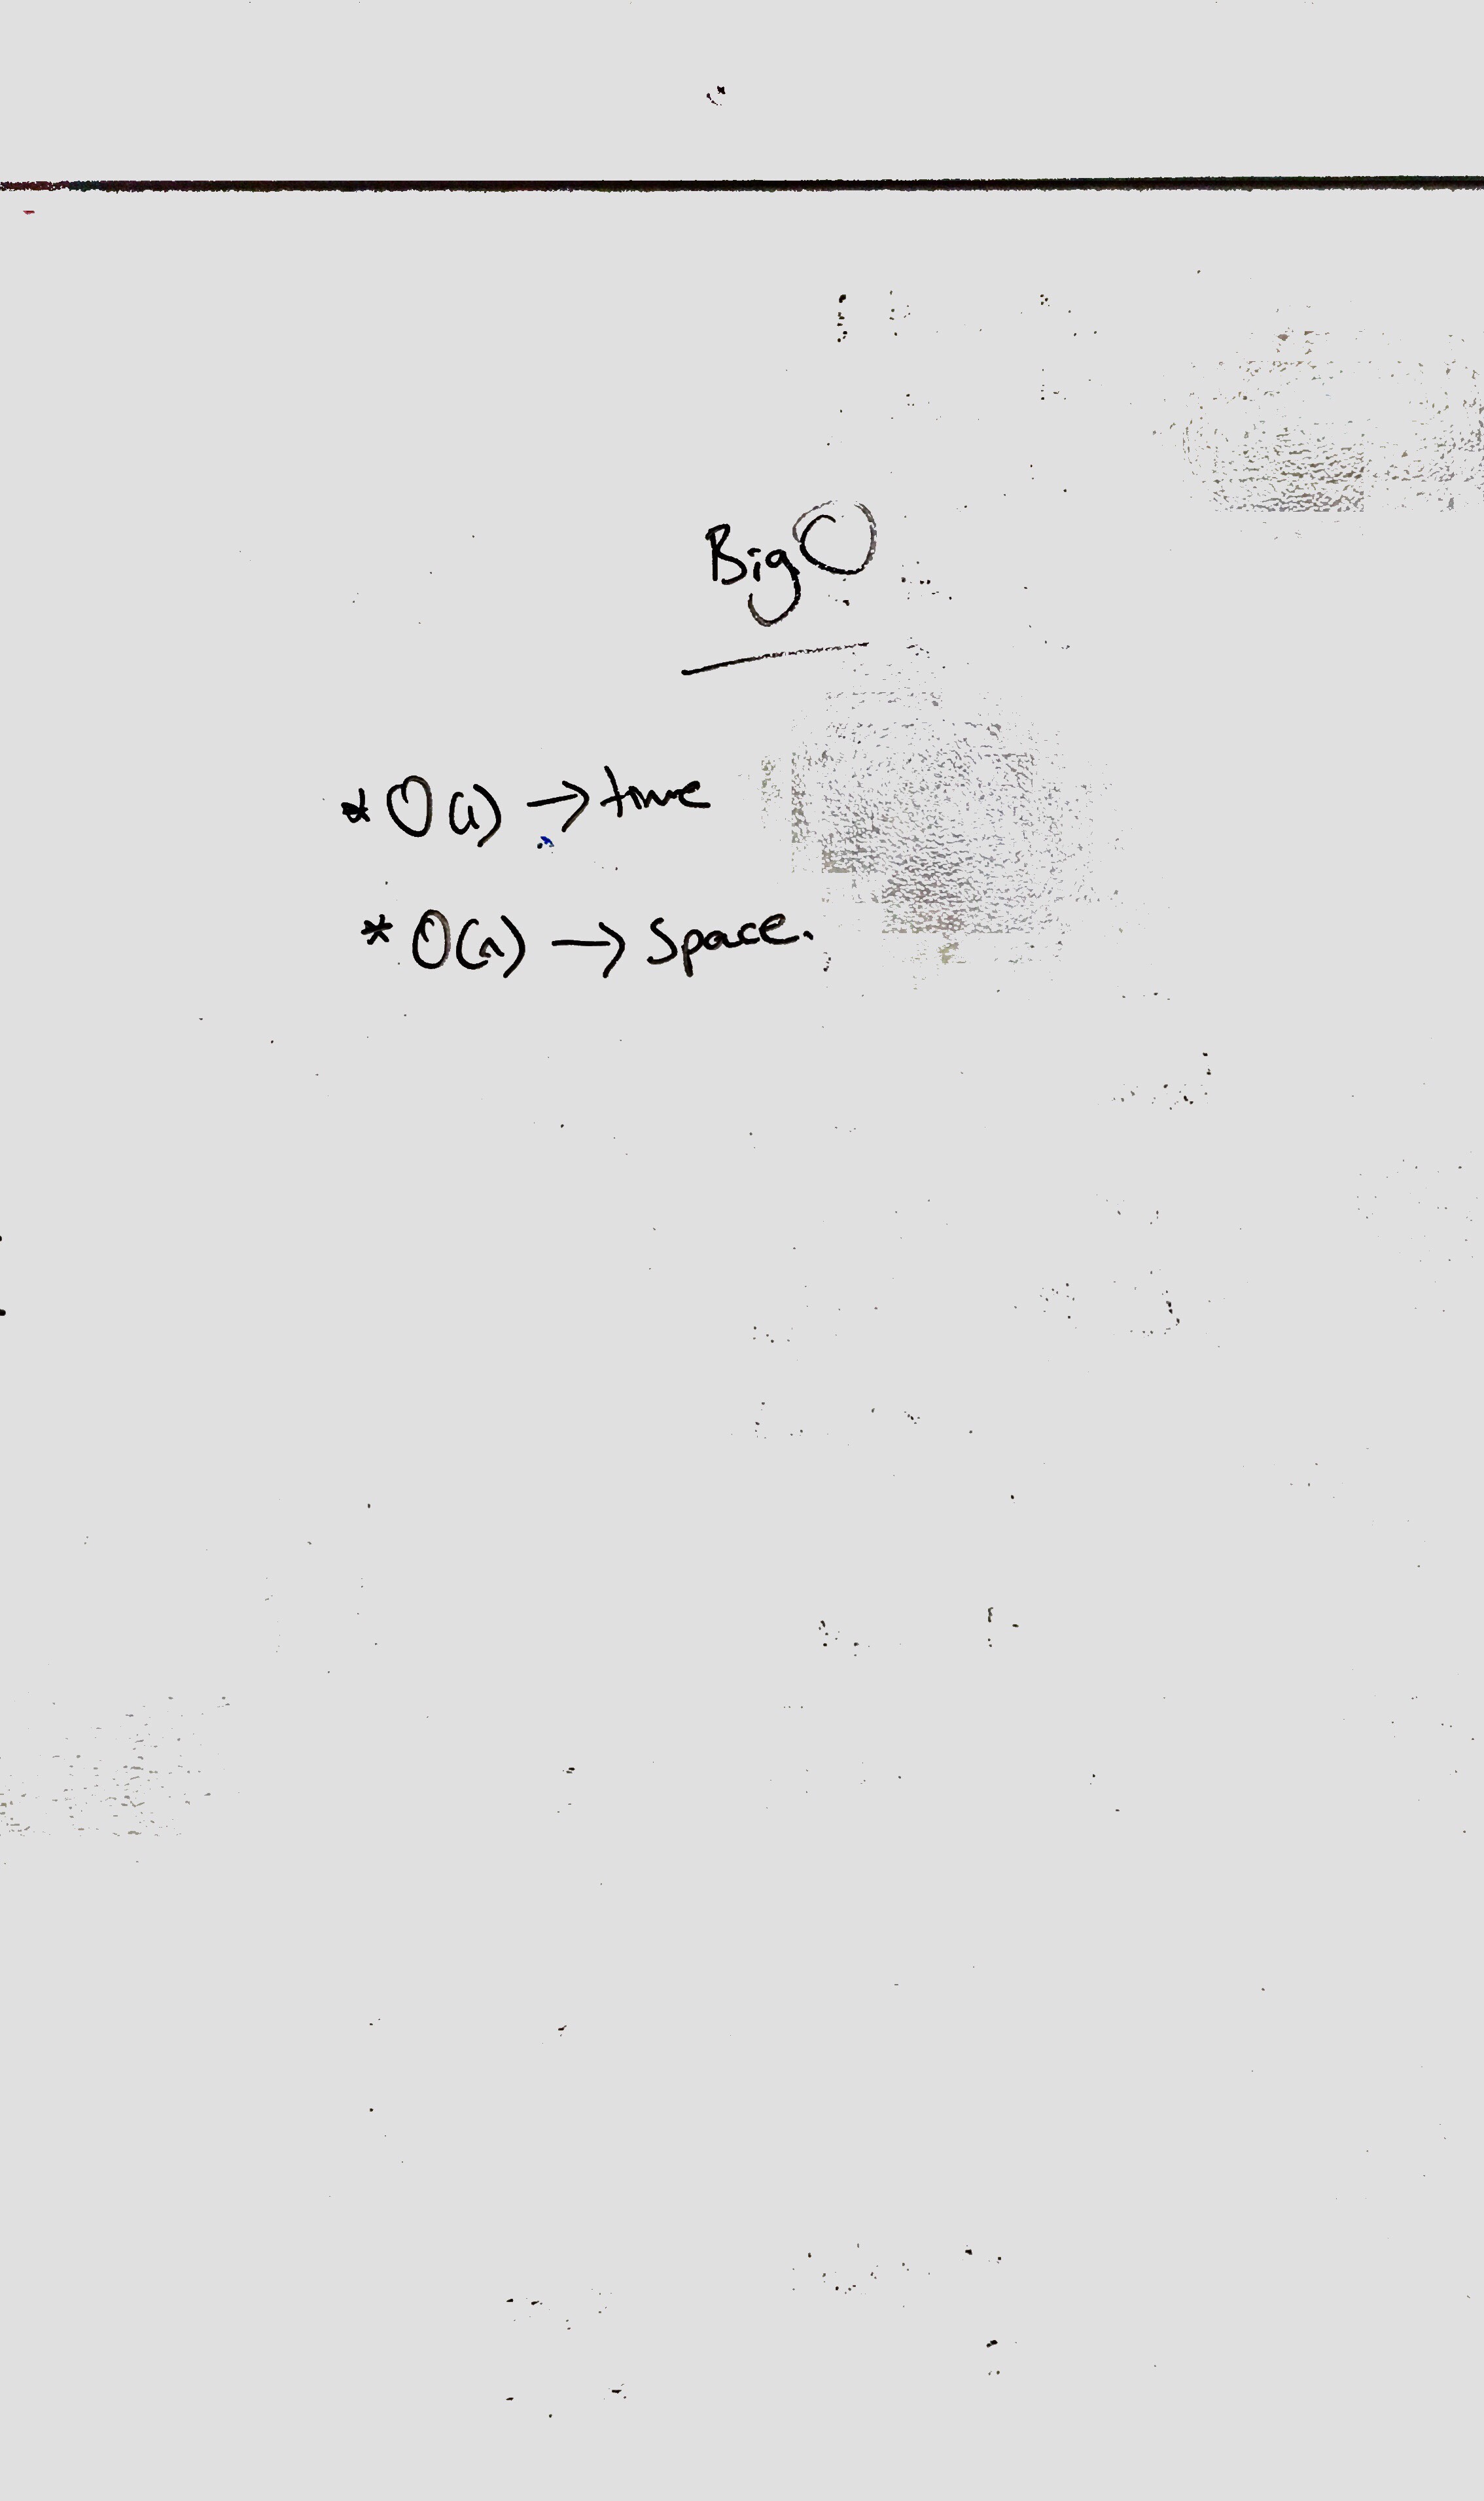 Big O
* O(1) → time
* O(n) → Space.